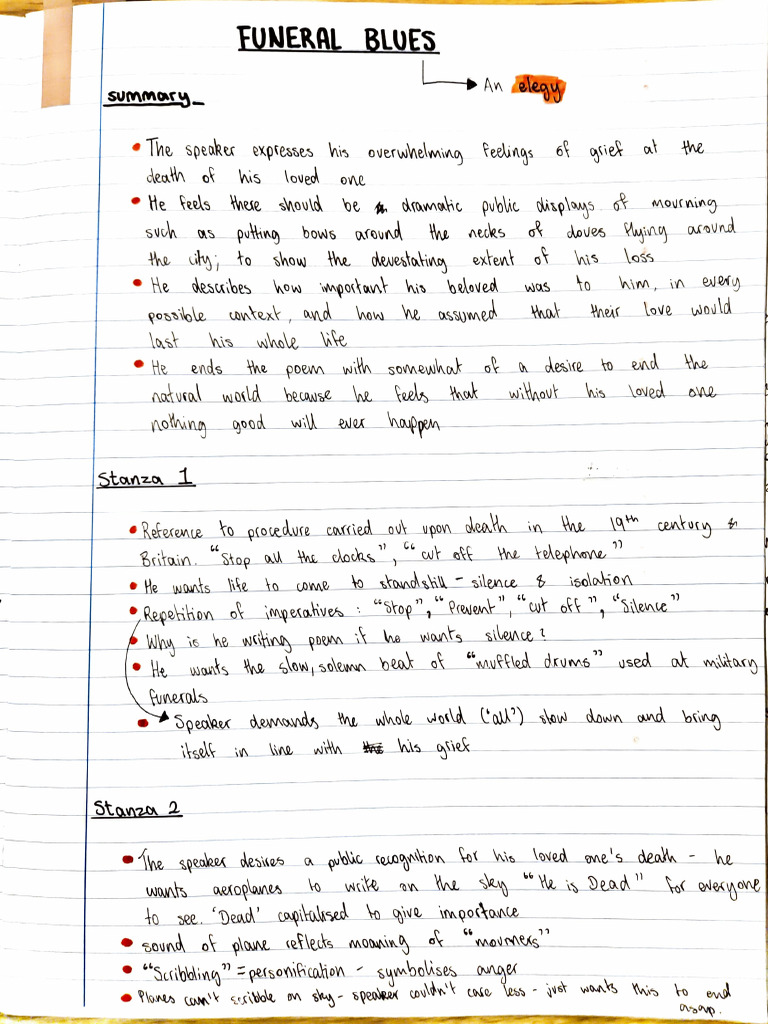 FUNERAL BLUES
An elegy
summary
• The speaker expresses his overwhelming feelings of grief at the
death of his loved one
• He feels there should be dramatic public displays of mourning
such as putting bows around the necks of doves flying around
the city; to show the devestating extent of his loss
• He describes how important his beloved was to him, in every
possible context, and how he assumed that their love would
last his whole life
• He ends the poem with somewhat of a desire to end the
natural world because he feels that without his loved one
nothing good will ever happen
Stanza 1
• Reference to procedure carried out upon death in the 19th century &
Britain. "Stop all the clocks", "cut off the telephone"
• He wants life to come to standstill - silence & isolation
• Repetition of imperatives : "Stop", "Prevent", "cut off", "Silence"
• Why is he writing poem if he wants silence?
• He wants the slow, solemn beat of "muffled drums" used at military
funerals
• Speaker demands the whole world ('all') slow down and bring
itself in line with the his grief
Stanza 2
• The speaker desires a public recognition for his loved one's death - he
wants aeroplanes to write on the sky "He is Dead" for everyone
to see. 'Dead' capitalised to give importance
• sound of plane reflects moaning of "mourners"
• "Scribbling" = personification - symbolises anger
• Planes can't scribble on sky - speaker couldn't care less - just wants this to end
asap.